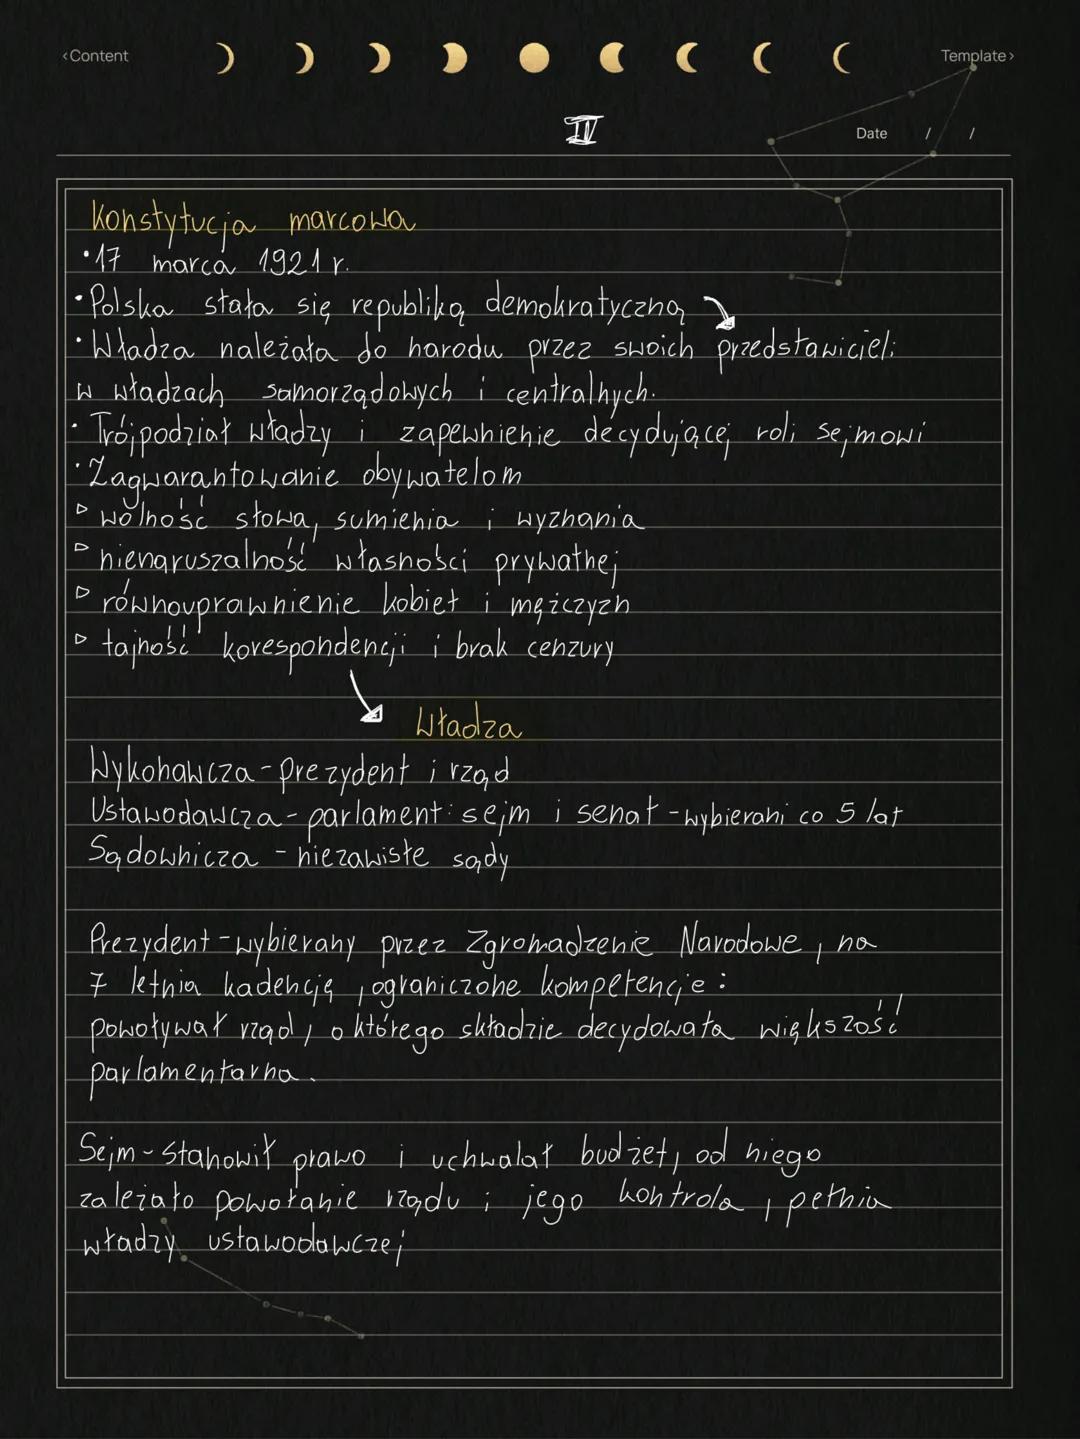 <Content
Template>
IV
Date / /
Konstytucja marcowa
•17 marca 1921 r.
•Polska stała się republiką demokratyczną
•Władza należała do narodu przez swoich przedstawicieli
w władzach samorządowych i centralnych.
•Trójpodział władzy i zapewnienie decydującej roli sejmowi
•Zagwarantowanie obywatelom
▹ wolność słowa, sumienia i wyznania
▹ nienaruszalność własności prywatnej
▹ równouprawnienie kobiet i mężczyzn
▹ tajność korespondencji i brak cenzury
Władza
Wykonawcza - prezydent i rząd
Ustawodawcza - parlament: sejm i senat - wybierani co 5 lat
Sądownicza - niezawisłe sądy
Prezydent - wybierany przez Zgromadzenie Narodowe, na
7 letnia kadencję, ograniczone kompetencje:
powoływał rząd, o którego składzie decydowała większość
parlamentarna.
Sejm - stanowił prawo i uchwalał budżet, od niego
zależało powołanie rządu i jego kontrola, pełnia
władzy ustawodawczej